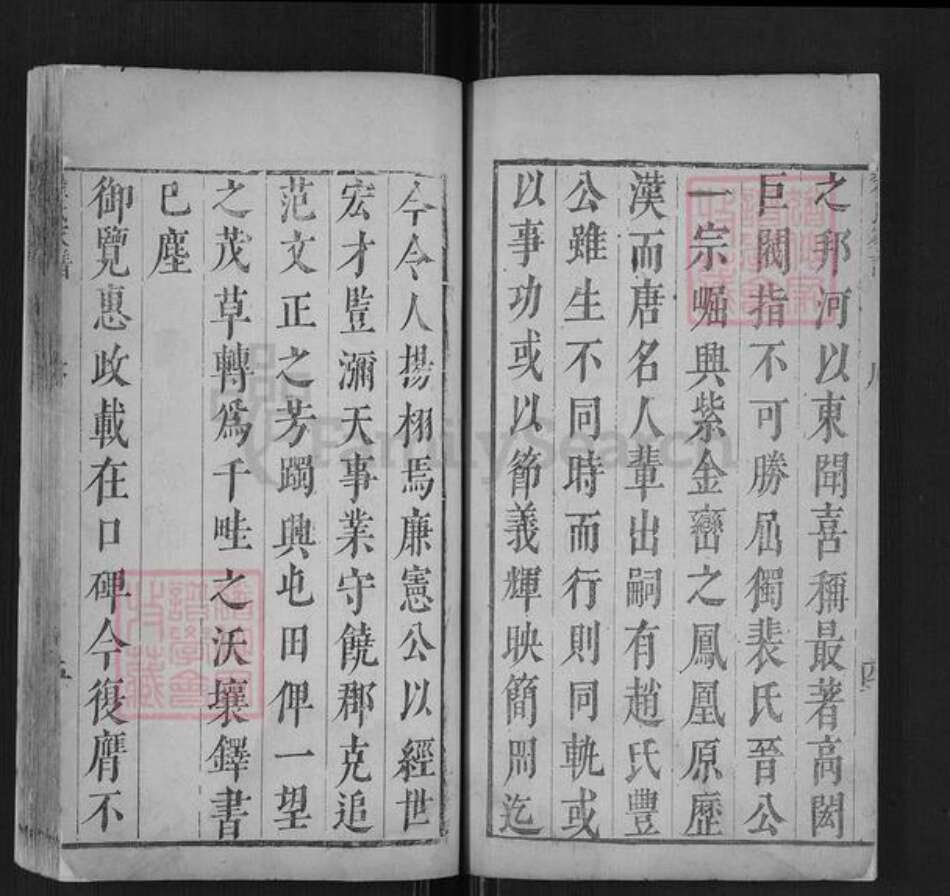 之邦河以東聞喜稱最著高閎
巨閥指不可勝屈獨裴氏晉公
一宗崛興紫金巒之鳳凰原歷
漢而唐名人輩出嗣有趙氏豐
公雖生不同時而行則同軌或
以事功或以節義輝映簡冊迄
今令人揚栩焉廉憲公以經世
宏才豎瀰天事業守饒郡克追
范文正之芳躅興屯田俾一望
之茂草轉為千畦之沃壤鐸書
已塵
御覽惠政載在口碑今復膺不
FamilySearch